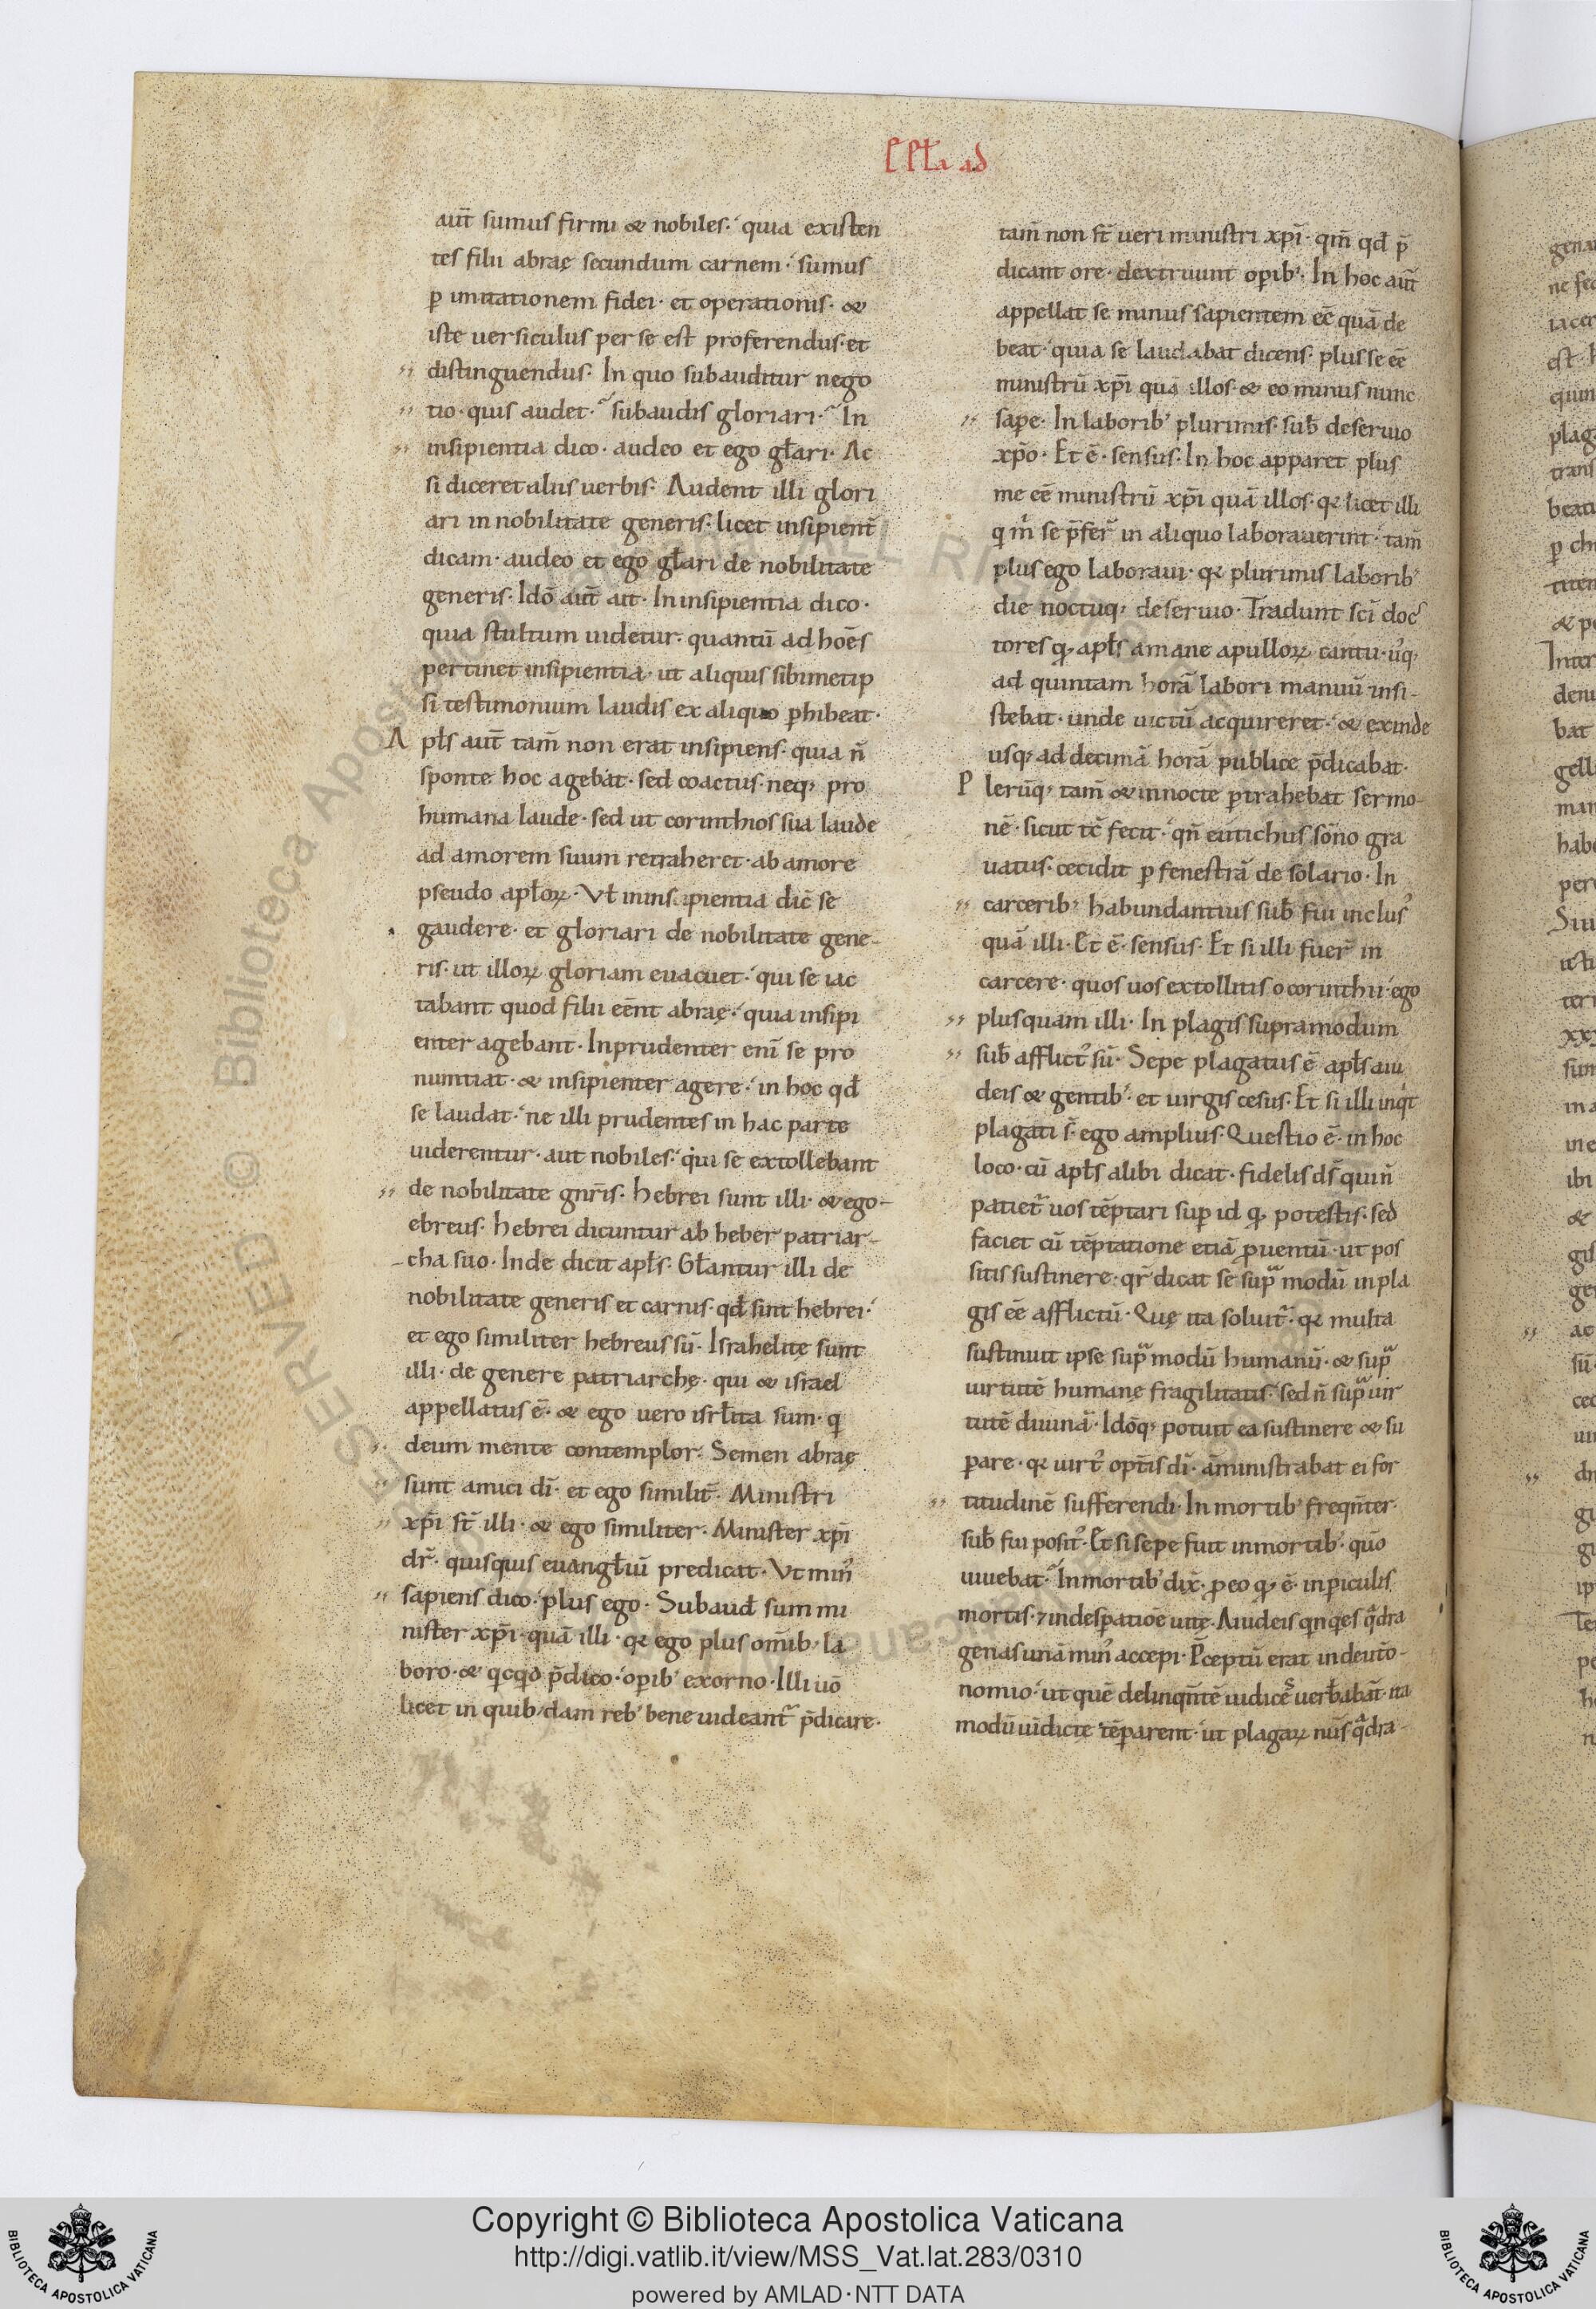 EPLa ad
aut̄ sumus firmi & nobiles. quia existen
tes filii abraę secundum carnem. sumus
p̲ imitationem fidei. et operationis. &
iste uersiculus per se est proferendus. et
distinguendus. In quo subauditur nego
tio. quis audet. subaudis gloriari. In
insipientia dico. audeo et ego gl̄ari. Ac
si diceret aliis uerbis. Audent illi glori
ari in nobilitate generis. licet insipient̄
dicam. audeo et ego gl̄ari de nobilitate
generis. Idō aut̄ ait. In insipientia dico.
quia stultum uidetur. quantū ad hoēs
pertinet insipientia. ut aliquis sibimetip
si testimonium laudis ex aliquo p̲hibeat.
Apl̄s aut̄ tam̄ non erat insipiens. quia n̄
sponte hoc agebat. sed coactus. neq; pro
humana laude. sed ut corinthios sua laude
ad amorem suum retraheret. ab amore
pseudo apl̄oꝝ. Vl̄ in insipientia dic̄ se
gaudere. et gloriari de nobilitate gene-
ris. ut illoꝝ gloriam euacuet. qui se iac
tabant quod filii eēnt abraę. quia insipi
enter agebant. Inprudenter enī se pro
nuntiat. & insipienter agere. in hoc qd̄
se laudat. ne illi prudentes in hac parte
uiderentur. aut nobiles. qui se extollebant
de nobilitate gnr̄is. Hebrei sunt illi. & ego
ebreus. Hebrei dicuntur ab heber patriar-
cha suo. Inde dicit apl̄s. Gl̄antur illi de
nobilitate generis et carnis. qd̄ sint hebrei.
et ego similiter hebreus sū. Israhelitę sunt
illi. de genere patriarchę. qui & israel
appellatus ē. & ego uero isrl̄ita sum. q
deum mente contemplor. Semen abraę
sunt amici dī. et ego similit̄. Ministri
xp̄i st̄ illi. & ego similiter. Minister xp̄i
dr̄. quisquis euangl̄iū predicat. Vt min᾽
sapiens dico. plus ego. Subaud̄ sum mi
nister xp̄i. quā illi. qꝛ ego plus om̄ib; la
boro. & qcqd p̄dico. op̲ib᾽ exorno. Illi uō
licet in quib;dam reb᾽ bene uideant᾽ p̄dicare.
tam̄ non st̄ ueri ministri xp̄i. qm̄ qd̄ p̄
dicant ore. dextruunt op̲ib᾽. In hoc aut̄
appellat se minus sapientem eē quā de
beat. quia se laudabat dicens. plus se eē
ministrū xp̄i quā illos. & eo minus nunc
sape. In laborib᾽ plurimis. sub̄ deseruio
xp̄o. Et ē. sensus. In hoc apparet plus
me eē ministrū xp̄i quā illos. qꝛ licet illi
q m̄ se p̄fer̄ in aliquo laborauerint. tam̄
plus ego laboraui. qꝛ plurimis laborib᾽
die noctuq; deseruio. Tradunt sc̄i doc
tores q apl̄s a mane a pulloꝝ cantu. usq;
ad quintam horā labori manuū insi-
stebat. unde uictū acquireret. & exinde
usq; ad decimā horā publice p̄dicabat.
Plerūq; tam̄ & in nocte p̲trahebat sermo-
nē. sicut tc̄ fecit. qn̄ eutichus sōno gra
uatus. cecidit p̲ fenestrā de solario. In
carcerib; habundantius sub̄ fui inclus᾽
quā illi. Et ē. sensus. Et si illi fuer̄ in
carcere. quos uos extollitis o corinthii. ego
plusquam illi. In plagis supramodum
sub̄ afflict᾽ sū. Sepe plagatus ē apl̄s a iu
deis & gentib᾽. et uirgis cesus. Et si illi inqt
plagati s̄. ego amplius. Questio ē. in hoc
loco. cū apl̄s alibi dicat. fidelis ds̄ qui n̄
patiet᾽ uos tēptari sup̲ id q potestis. sed
faciet cū tēptatione etiā prouentū. ut pos
sitis sustinere. qr̄ dicat se sup̲ modū in pla
gis eē afflictū. Quę ita soluit᾽. qꝛ multa
sustinuit ipse sup̲ modū humanū. & sup̲
uirtutē humanę fragilitatis. sed n̄ sup̲ uir
tutē diuinā. Idōq; potuit ea sustinere & su
p̲are. qꝛ uirt᾽ op̄tis dī. aministrabat ei for
titudinē sufferendi. In mortib᾽ freqn̄ter.
sub̄ fui posit᾽. Et si sepe fuit in mortib᾽. quō
uiuebat. In mortib᾽ dix̄. p̲ eo q ē. in p̲iculis
mortis. ⁊ in desp̲atiōe uitę. A iudeis qnqes qdra
genas unā min᾽ accepi. P̄ceptū erat in deut̄o-
nomio. ut quē delinqn̄tē iudices uerb̄abat̄. ita
modū uīdictę tēp̲arent. ut plagaꝝ nūs qdra-
Copyright © Biblioteca Apostolica Vaticana
http://digi.vatlib.it/view/MSS_Vat.lat.283/0310
powered by AMLAD·NTT DATA
BIBLIOTECA APOSTOLICA VATICANA
BIBLIOTECA APOSTOLICA VATICANA